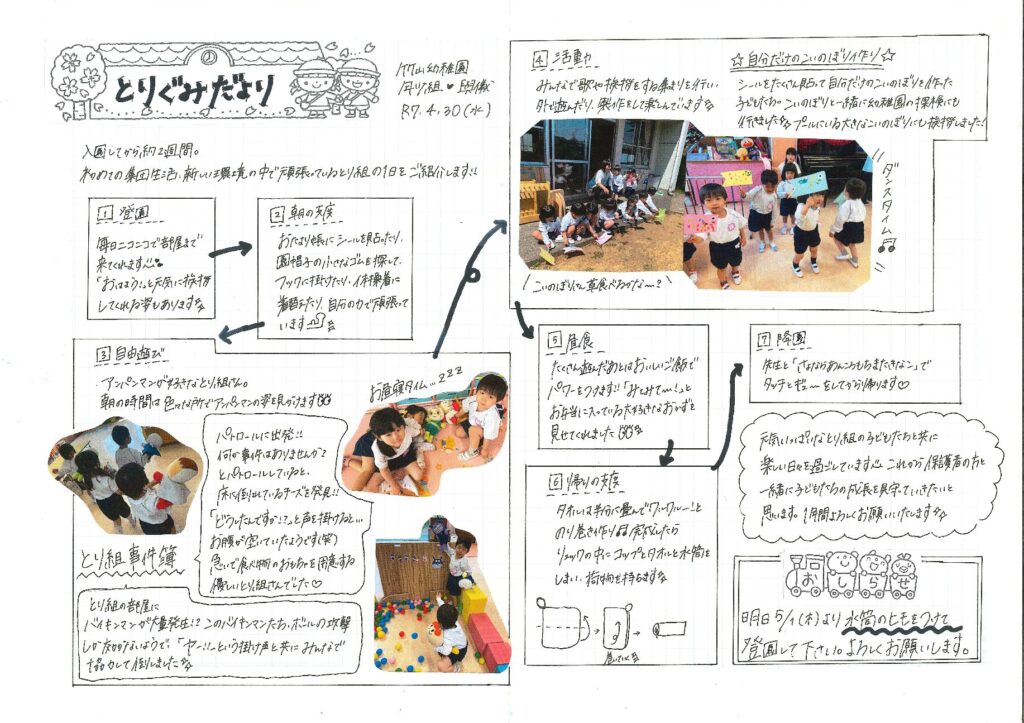 とりぐみだより
竹山幼稚園
R7.4.30(水)
入園してから約2週間。
初めての集団生活、新しい環境の中で頑張っているとり組の1日をご紹介します!!
1 登園
毎日ニコニコで部屋まで
来てくれます
「おはよう!」と元気に挨拶
してくれる姿もあります
2 朝の支度
おたより帳にシールを貼ったり、
園帽子の小さなゴムを探して、
フックに掛けたり、体操着に
着替えたり、自分の力で頑張って
います
3 自由遊び
アンパンマンが好きなとり組さん。
朝の時間は色々な所でアンパンマンの姿を見かけます
お昼寝タイム…zzz
パトロールに出発!!
何か事件はありませんか?
とパトロールしていると、
床に倒れているチーズを発見!!
「どうしたんですか!?」と声を掛けると…
お腹が空いていたようです(笑)
急いで食べ物のおもちゃを用意する
優しいとり組さんでした♡
とり組事件簿
とり組の部屋に
バイキンマンが大量発生!? このバイキンマンたち、ボールの攻撃
しか効かないようで、「ヤー!!」という掛け声と共にみんなで
協力して倒しました
4 活動
みんなで歌や挨拶をする集まりを行い、
外で遊んだり、製作をして楽しんでいます
☆自分だけのこいのぼり作り☆
シールをたくさん貼って自分だけのこいのぼりを作った
子どもたち。こいのぼりと一緒に幼稚園の探検にも
行きました プールにいる大きなこいのぼりにも挨拶しました!
ダンスタイム♫
こいのぼりさん草食べるかな〜?
5 昼食
たくさん遊んだあとはおいしいご飯で
パワーをつけます!!「みてみて〜!」と
お弁当に入っている大好きなおかずを
見せてくれました
6 帰りの支度
タオルは半分に畳んでクルクルー!と
のり巻き作り♫ 完成したら
リュックの中にコップとタオルと水筒を
しまい、荷物を持ちます
7 降園
先生と「さよならあんころもちまたきなこ」で
タッチとギューをしてから帰ります♡
元気いっぱいなとり組の子どもたちと共に
楽しい日々を過ごしています。これから保護者の方と
一緒に子どもたちの成長を見守っていきたいと
思います。1年間よろしくお願いいたします
おしらせ
明日5/1(木)より水筒のヒモをつけて
登園して下さい。よろしくお願いします。